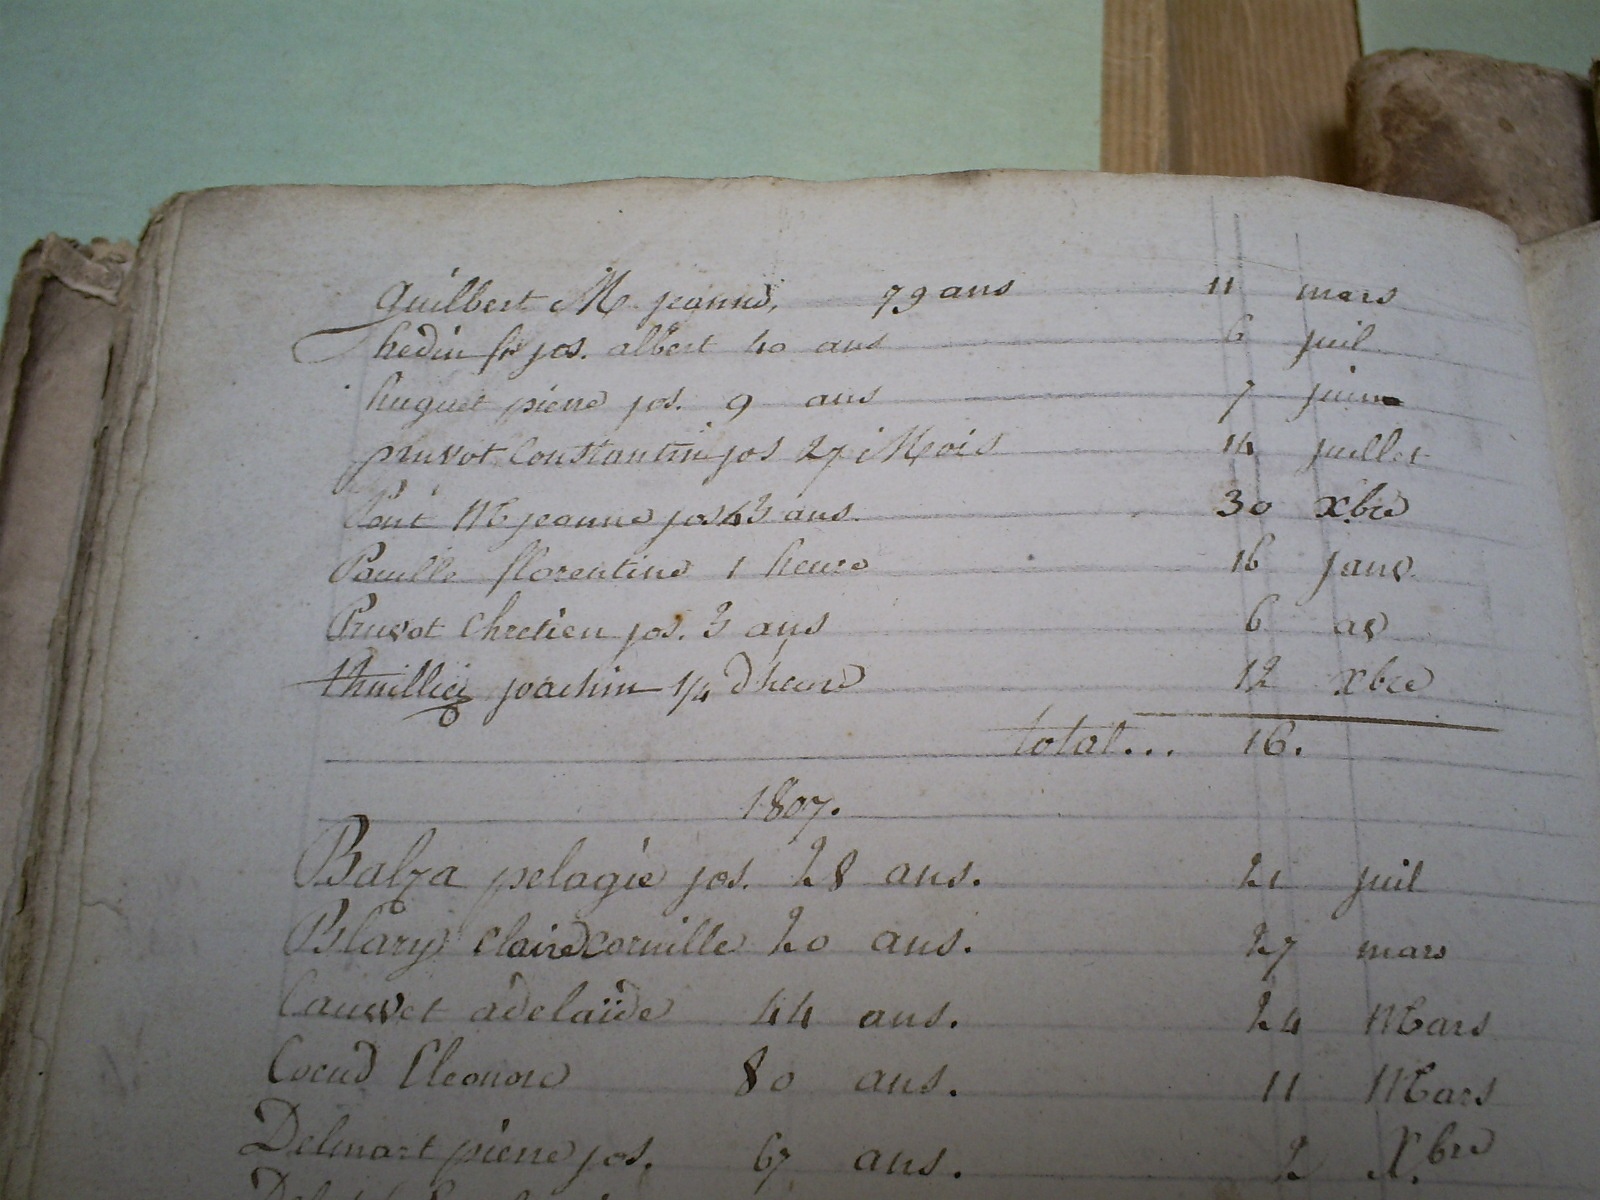 Guilbert M jeanne, 79 ans 11 mars
hedin fr jos. albert 40 ans 6 juil
huguet pierre jos. 9 ans 7 juin
pruvot Constantin jos 27 Mois 14 juillet
M jeanne jos 43 ans. 30 Xbre
Pouille florentine 1 heure 16 janv.
Pruvot Chretien jos. 3 ans 6 av
thuillier joachim 1/4 d heure 12 xbre
total... 16.
1807.
Balza pelagie jos. 28 ans. 21 juil
Blary Claire 20 ans. 27 mars
Cauvet adelaïde 44 ans. 24 Mars
Eleonore 80 ans. 11 Mars
Delmart pierre jos. 67 ans. 2 Xbre